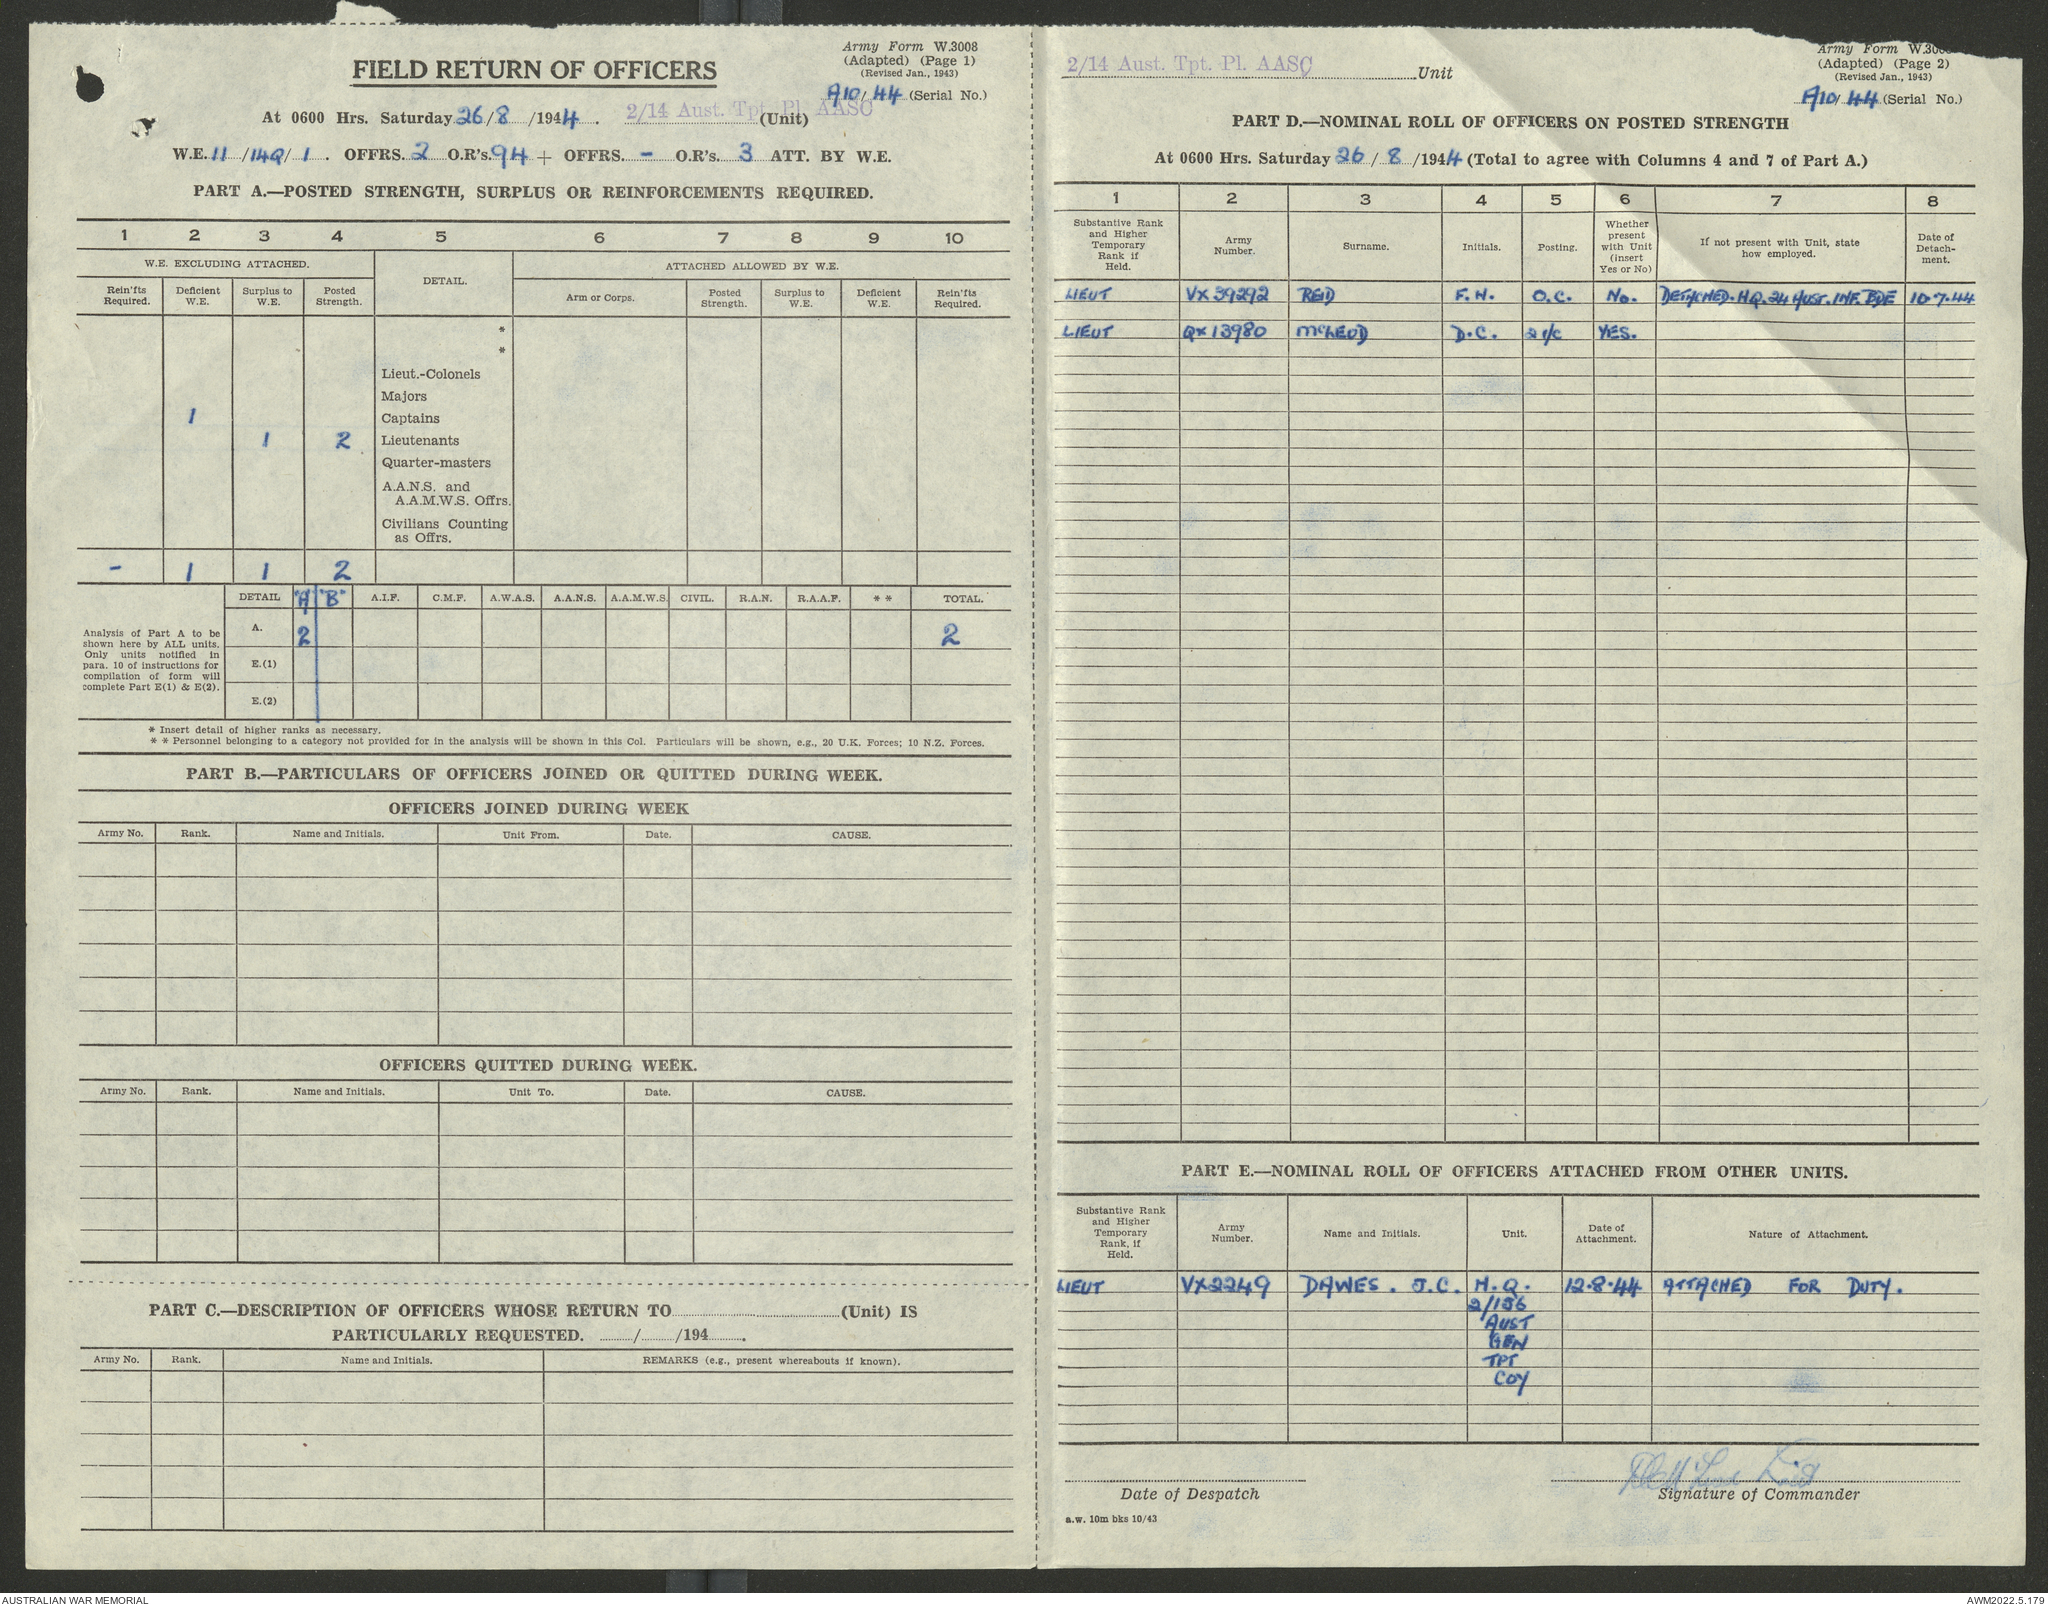 Army Form W.3008
(Adapted) (Page 1)
(Revised Jan., 1943)
FIELD RETURN OF OFFICERS
A10/44 (Serial No.)
At 0600 Hrs. Saturday 26/8/1944. 2/14 Aust. Tpt. Pl. AASC (Unit)
W.E. 11/14Q/1. OFFRS. 2 O.R's. 94 + OFFRS. - O.R's. 3 ATT. BY W.E.
PART A.—POSTED STRENGTH, SURPLUS OR REINFORCEMENTS REQUIRED.
1 2 3 4 5 6 7 8 9 10
W.E. EXCLUDING ATTACHED. DETAIL. ATTACHED ALLOWED BY W.E.
Rein'fts Required. Deficient W.E. Surplus to W.E. Posted Strength. Arm or Corps. Posted Strength. Surplus to W.E. Deficient W.E. Rein'fts Required.
*
*
Lieut.-Colonels
Majors
1 Captains
1 2 Lieutenants
Quarter-masters
A.A.N.S. and
A.A.M.W.S. Offrs.
Civilians Counting
as Offrs.
- 1 1 2
DETAIL "A" "B" A.I.F. C.M.F. A.W.A.S. A.A.N.S. A.A.M.W.S. CIVIL. R.A.N. R.A.A.F. * * TOTAL.
Analysis of Part A to be
shown here by ALL units.
Only units notified in
para. 10 of instructions for
compilation of form will
complete Part E(1) & E(2).
A. 2 2
E.(1)
E.(2)
* Insert detail of higher ranks as necessary.
* * Personnel belonging to a category not provided for in the analysis will be shown in this Col. Particulars will be shown, e.g., 20 U.K. Forces; 10 N.Z. Forces.
PART B.—PARTICULARS OF OFFICERS JOINED OR QUITTED DURING WEEK.
OFFICERS JOINED DURING WEEK
Army No. Rank. Name and Initials. Unit From. Date. CAUSE.
OFFICERS QUITTED DURING WEEK.
Army No. Rank. Name and Initials. Unit To. Date. CAUSE.
PART C.—DESCRIPTION OF OFFICERS WHOSE RETURN TO (Unit) IS
PARTICULARLY REQUESTED. / /194 .
Army No. Rank. Name and Initials. REMARKS (e.g., present whereabouts if known).
2/14 Aust. Tpt. Pl. AASC Unit
Army Form W.3008
(Adapted) (Page 2)
(Revised Jan., 1943)
A10/44 (Serial No.)
PART D.—NOMINAL ROLL OF OFFICERS ON POSTED STRENGTH
At 0600 Hrs. Saturday 26/8/1944 (Total to agree with Columns 4 and 7 of Part A.)
1 2 3 4 5 6 7 8
Substantive Rank and Higher Temporary Rank if Held. Army Number. Surname. Initials. Posting. Whether present with Unit (insert Yes or No) If not present with Unit, state how employed. Date of Detach-ment.
LIEUT VX39292 REID F.H. O.C. No. DETACHED. HQ. 24 AUST. INF. BDE 10.7.44
LIEUT QX13980 McLEOD D.C. 2 I/C YES.
PART E.—NOMINAL ROLL OF OFFICERS ATTACHED FROM OTHER UNITS.
Substantive Rank and Higher Temporary Rank, if Held. Army Number. Name and Initials. Unit. Date of Attachment. Nature of Attachment.
LIEUT VX2249 DAWES. J.C. H.Q. 12.8.44 ATTACHED FOR DUTY.
2/156
AUST
GEN
TPT
COY
Date of Despatch
Signature of Commander
a.w. 10m bks 10/43
AUSTRALIAN WAR MEMORIAL
AWM2022.5.179